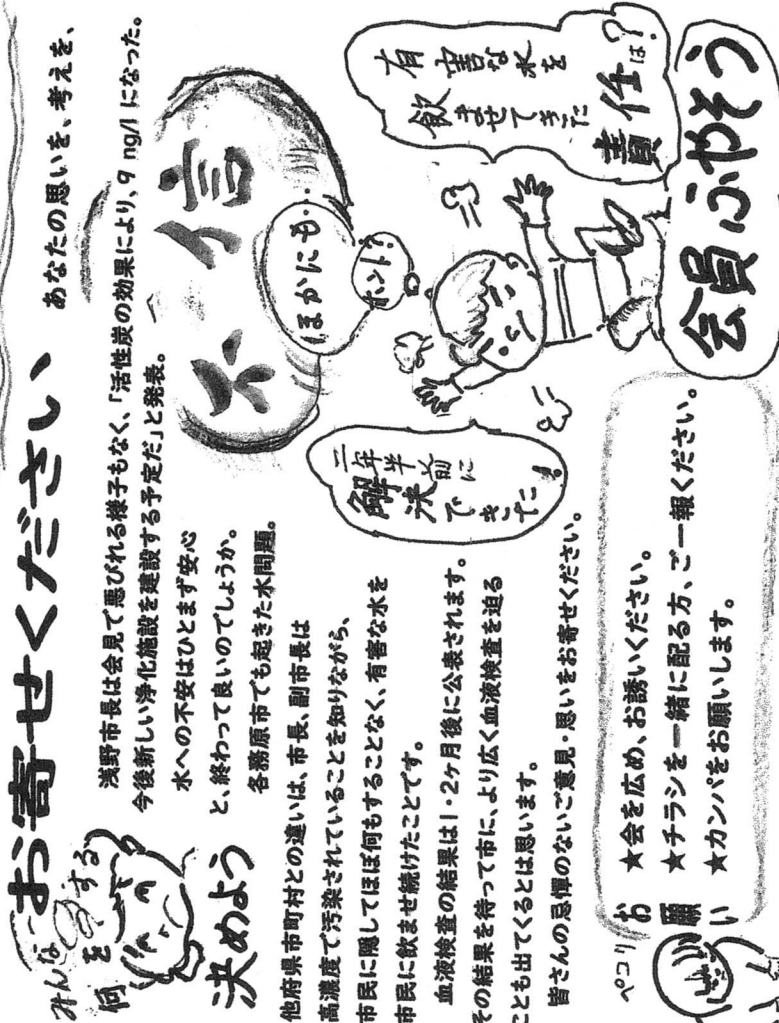 あなたの思いを、考えを、
お寄せください
みんなで
何をする
決めよう
浅野市長は会見で悪びれる様子もなく、「活性炭の効果により、9 ng/l になった。
今後新しい浄化施設を建設する予定だ」と発表。
水への不安はひとまず安心
と、終わって良いのでしょうか。
各務原市でも起きた水問題。
他府県市町村との違いは、市長、副市長は
高濃度で汚染されていることを知りながら、
市民に隠してほぼ何もすることなく、有害な水を
市民に飲ませ続けたことです。
血液検査の結果は1・2ヶ月後に公表されます。
その結果を待って市に、より広く血液検査を迫る
ことも出てくるとは思います。
皆さんの忌憚のないご意見・思いをお寄せください。
不信
ほかにも・・
ホント?
有害な水を
飲ませてきた
責任は?
二年半前に
解決
できた!
会員ふやそう
ペコリ
お願い
★会を広め、お誘いください。
★チラシを一緒に配る方、ご一報ください。
★カンパをお願いします。